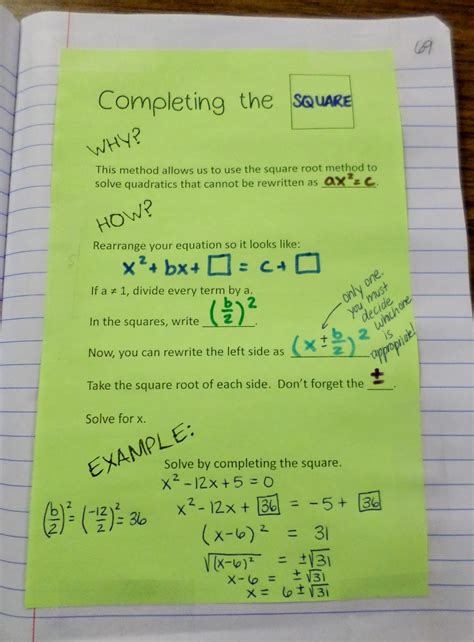 69
Completing the SQUARE
WHY?
This method allows us to use the square root method to
solve quadratics that cannot be rewritten as ax² = c.
HOW?
Rearrange your equation so it looks like:
x² + bx + □ = c + □
If a ≠ 1, divide every term by a.
In the squares, write (b/2)².
Now, you can rewrite the left side as (x ± b/2)².
only one.
You must
decide
which one
is
appropriate!
Take the square root of each side. Don't forget the ±.
Solve for x.
EXAMPLE:
Solve by completing the square.
x² - 12x + 5 = 0
(b/2)² = (-12/2)² = 36
x² - 12x + 36 = -5 + 36
(x-6)² = 31
√(x-6)² = ±√31
x-6 = ±√31
x = 6 ± √31